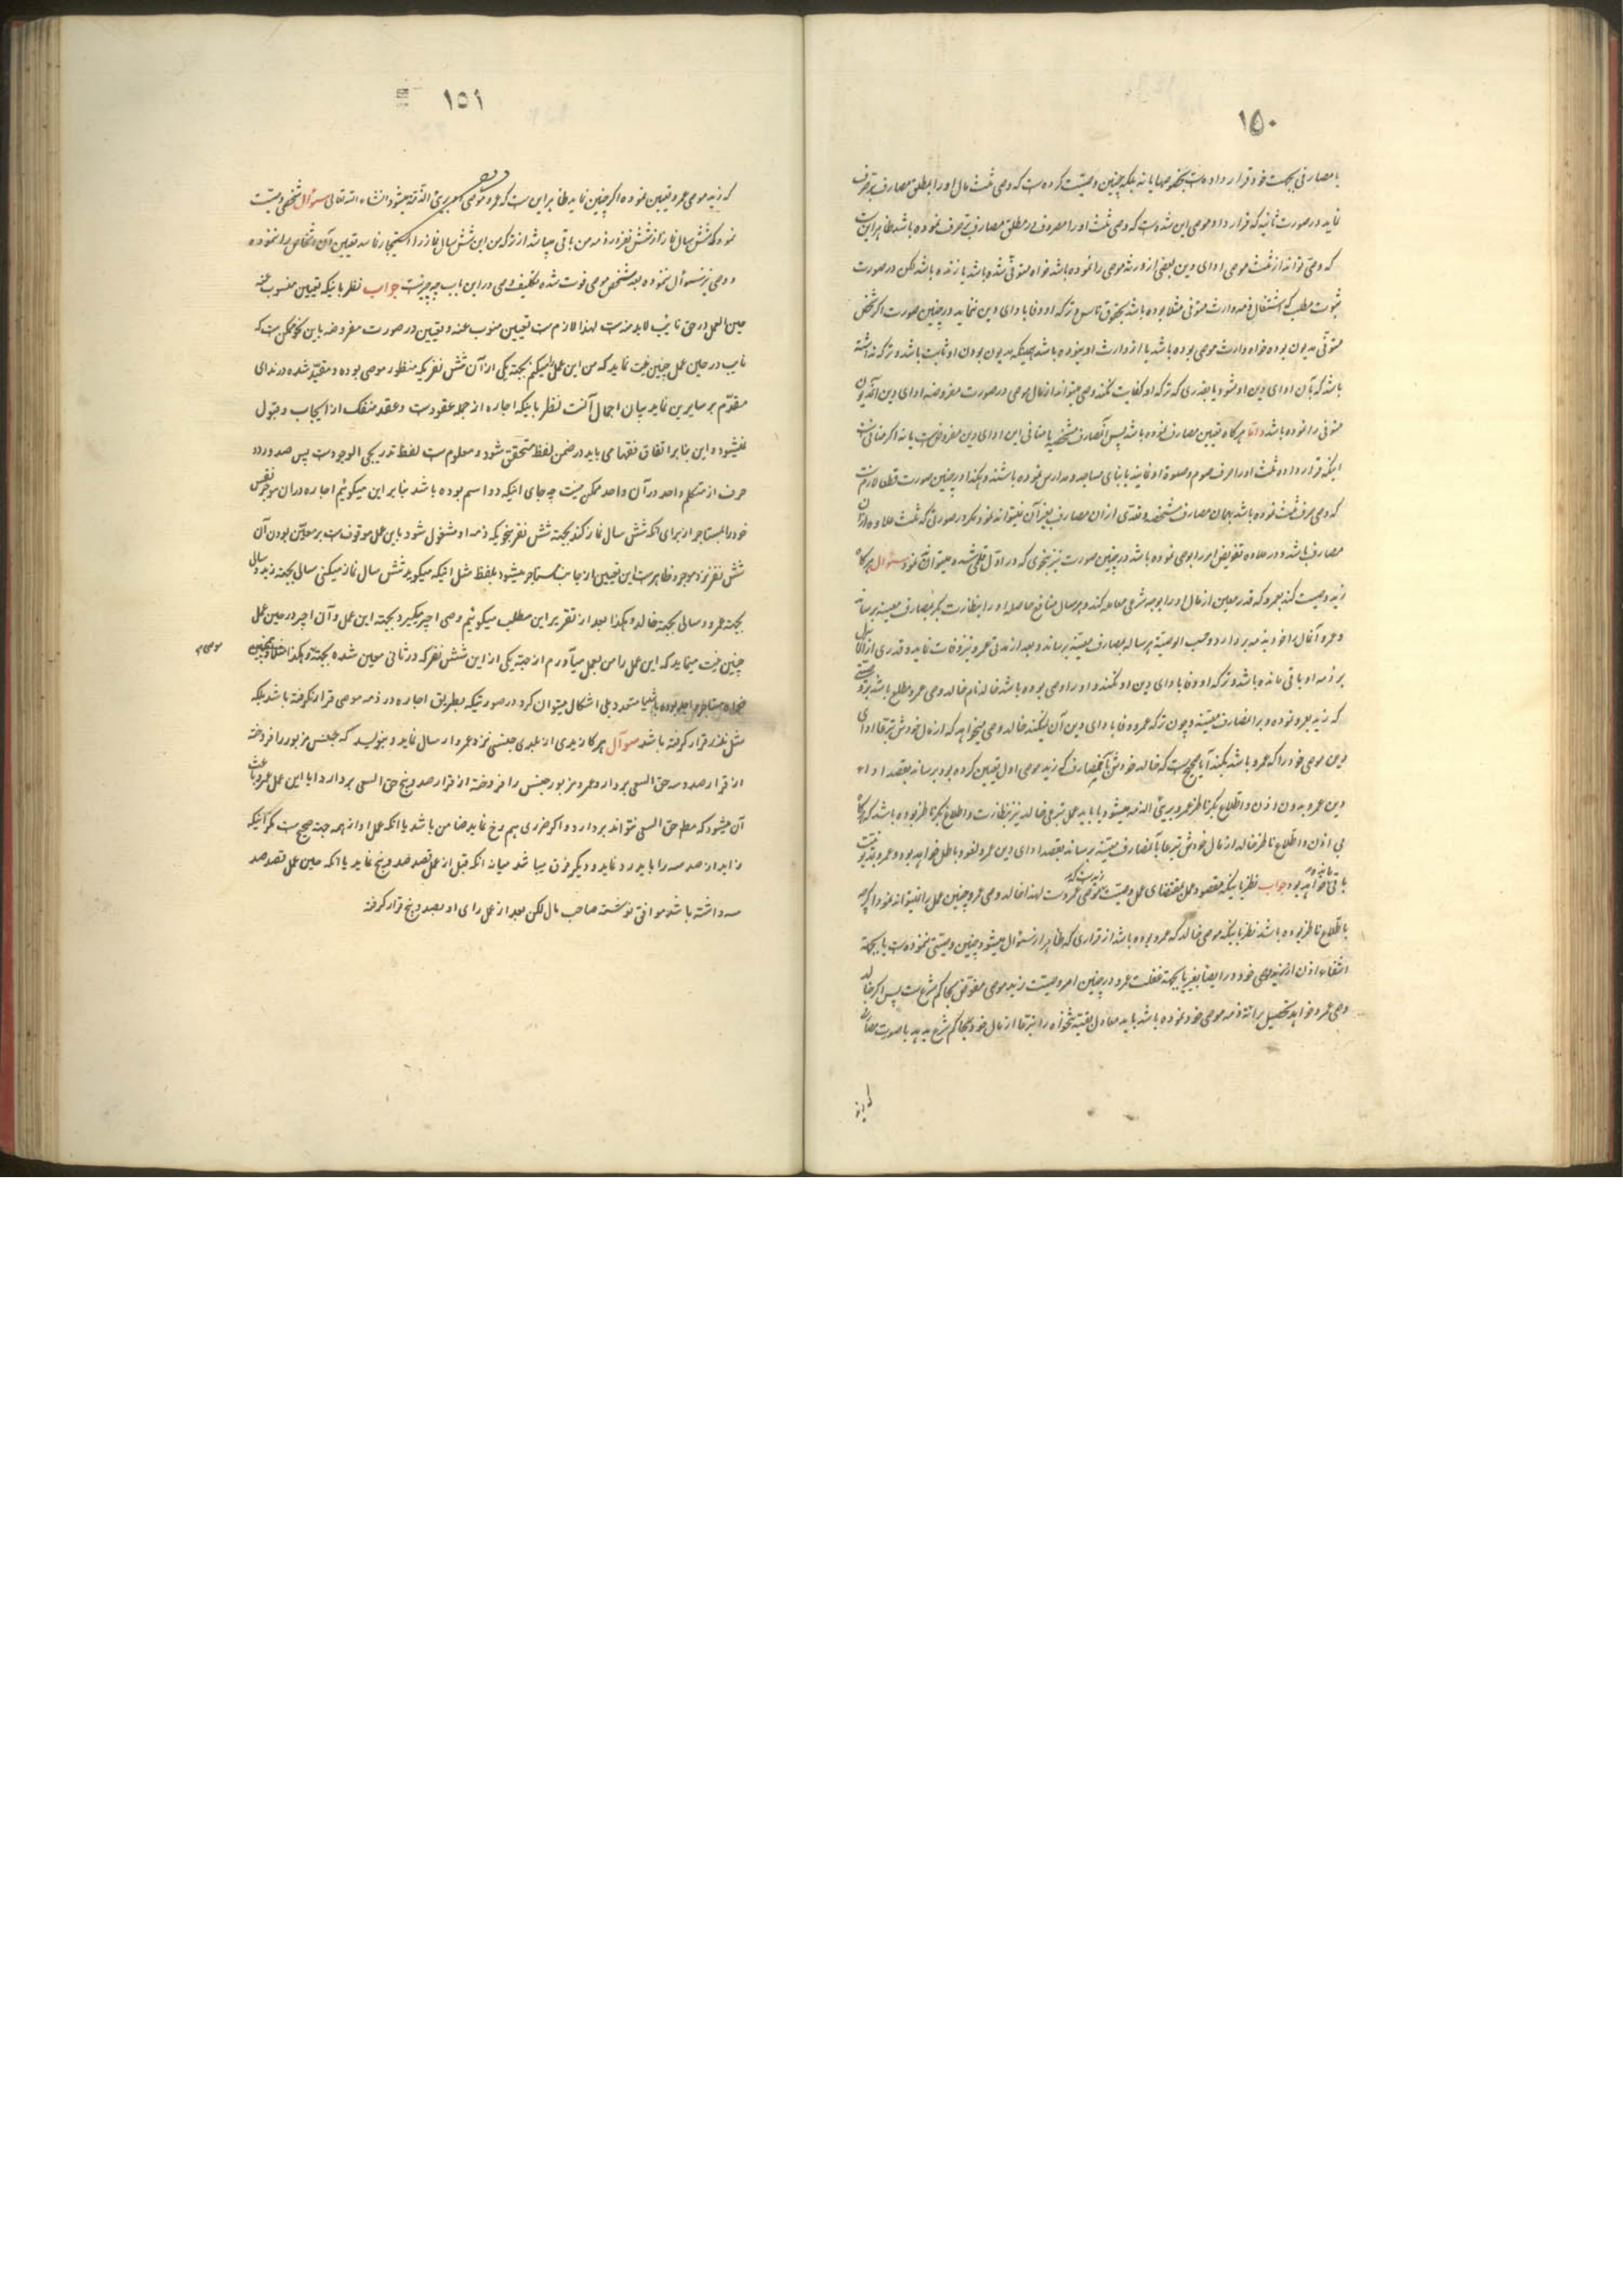 ١٥٠
یا مصارفی بجهت خود قرار داده است بخصوصها یا نه بلکه چنین وصیت کرده است که وصی ثلث مال او را بمطلق مصارف بر صرف
نماید در صورت ثانیه که قرارداد موصی این شده است که وصی ثلث او را مصروف در مطلق مصارف بر صرف نموده باشد ظاهر این است
که وصی تواند از ثلث موصی ادای دین بعضی از ورثه موصی را نموده باشد خواه متوفی شده باشد یا زنده باشد لکن در صورت
ثبوت مطلب که اشتغال ذمه وارث متوفی مثلا بوده باشد بحقوق ناس و ترکه او وفا بادای دین ننماید در چنین صورت اگر شخص
متوفی مدیون بوده خواه وارث موصی بوده باشد یا از وارث او نبوده باشد همینکه مدیون بودن او ثابت باشد و ترکه نداشته
باشد که بآن ادای دین او شود یا بقدری که ترکه او کفایت نکند وصی میتواند از مال موصی در صورت مفروضه ادای دین آن مدیون
متوفی را نموده باشد و اما هر گاه تعیین مصارف نموده باشد پس آن مصارف مشخصه یا منافی این ادای دین مفروض است یا نه اگر منافی است
اینکه قرار داده ثلث او را صرف صوم و صلوة او نمایند یا بنای مساجد و مدارس نموده باشند و هکذا در چنین صورت قطعا لازم است
که وصی صرف ثلث نموده باشد بهمان مصارف مشخصه و تعدی از ان مصارف بغیر آن نمیتواند نمود مگر در صورتی که ثلث علاوه از آن
مصارف باشد و در علاوه تفویض امر را بوصی نموده باشد در چنین صورت نیز بنحوی که در اول قلمی شده میتوان نمود سئوال هر گاه
زید وصیت کند بعمرو که قدر معین از مال او را بوجه شرعی معامله کند و هر سال منافع حاصله او را بنظارت بکر بمصارف معینه برساند
و عمرو آنمال را خود بذمه بردارد و حسب الوصیة هر ساله بمصارف معینه برساند و بعد از مدتی عمرو نیز وفات نماید و قدری از آن مال
بر ذمه او باقی مانده باشد و ترکه او وفا بادای دین او نکند و او را وصی بوده باشد خالد نام خالد وصی عمرو مطلع باشد بر وصیتی
که زید بعمرو نموده و بر آنمصارف معینه و چون ترکه عمرو وفا بادای دین آن نمیکند خالد وصی میخواهد که از مال خودش تبرعا ادای
دین موصی خود را که عمرو باشد بکند آیا صحیح است که خالد خودش بآنمصارف که زید موصی اول تعیین کرده بود برساند بقصد اداء
دین عمرو بدون اذن و اطلاع بکر ناظر عمرو بریئ الذمه میشود یا باید عمل تبرعی خالد نیز بنظارت و اطلاع بکر ناظر بوده باشد که هر گاه
بی اذن و اطلاع ناظر خالد از مال خودش تبرعا بآنمصارف معینه برساند بقصد ادای دین عمرو لغو و باطل خواهد بود و عمرو مدیون
باقی خواهد بود جواب نظر باینکه مقصود عمل بمقتضای عمل وصیت موصی عمرو است لهذا خالد وصی عمرو چنین عمل را نمیتواند نمود اگر چه
باطلاع ناظر بوده باشد نظر باینکه موصی خالد که عمرو بوده باشد از قراری که ظاهر از سئوال میشود چنین وصیتی ننموده است یا بجهة
انتفاء اذن از زید موصی خود در ایصا بغیر یا بجهة غفلت عمرو در چنین امر وصیت زید موصی مفوض بحاکم شرع است پس اگر خالد
وصی عمرو خواهد تحصیل برائة ذمه موصی خود نموده باشد باید معادل بقیة تنخواه را تبرعا از مال خود بحاکم شرع بدهد یا بصورت مصارف
١٥١
که زید موصی عمرو تعیین نموده اگر چنین نماید ظاهر این است که عمرو موصی بریئ الذمه میشود انشاء الله تعالی سئوال شخصی وصیت
نمود که شش سال نماز از شش نفر در ذمه من باقی میباشد از ترکه من این شش سال نماز را استیجار نمائید تعیین آن اشخاص را ننموده
و وصی نیز سئوال ننموده بعد شخص موصی فوت شده تکلیف وصی در این باب چه چیز است جواب نظر باینکه تعیین منسوب عنه
حین العمل در حق نایب لابد منه است لهذا لازم است تعیین منوب عنه و تعیین در صورت مفروضه باین نحو ممکن است که
نایب در حین عمل چنین نیت نماید که من این عمل را میکنم بجهة یکی از آن شش نفریکه منظور موصی بوده و مقید شده در ندای
مقدم بر سایرین نماید بیان اجمال آنست نظر باینکه اجاره از جمله عقود است و عقد منفک از ایجاب و قبول
نمیشود و این بنابر اتفاق فقها می باید در ضمن لفظ متحقق شود و معلوم است لفظ تدریجی الوجود است پس صدور دو
حرف از متکلم واحد در آن واحد ممکن نیست چه جای اینکه دو اسم بوده باشد بنابر این میگوئیم اجاره دادن موجر نفس
خود را بمستاجر از برای انکه شش سال نماز کند بجهة شش نفر بنحویکه ذمه او مشغول شود باین عمل موقوف است بر معین بودن آن
شش نفر نزد موجر و ظاهر است این تعیین از جانب مستاجر میشود بلفظ مثل اینکه میگوید شش سال نماز میکنی سالی بجهة زید و سالی
بجهة عمرو و سالی بجهة خالد و هکذا بعد از تقریر این مطلب میگوئیم وصی اجیر میگیرد بجهة این عمل و آن اجیر در حین عمل
چنین نیت مینماید که این عمل را من بعمل میآورم از جهة یکی از این شش نفر که در ثانی معین شده بجهة و هکذا
خواه مستاجر واحد بوده باشد یا متعدد بلی اشکال میتوان کرد در صورتیکه بطریق اجاره در ذمه موصی قرار نگرفته باشد بلکه
مثل نذر قرار گرفته باشد سوآل هر گاه زیدی از بلدی جنسی نزد عمرو ارسال نماید و بنویسد که جنس مزبور را فروخته
از قرار صد و سه حق السعی بردارد و عمرو مزبور جنس را فروخته از قرار صد و پنج حق السعی بردارد ایا این عمل عمرو باعث
آن میشود که مطلق حق السعی نتواند بردارد و اگر ضرری هم رخ نماید ضامن باشد یا انکه عمل او از همه جهة صحیح است مگر اینکه
زاید از صد سه را باید رد نماید و دیگر فرق میباشد میانه انکه قبل از عمل قصد صد و پنج نماید یا انکه حین عمل قصد صد
سه داشته باشد موافق نوشته صاحب مال لکن بعد از عمل رای او بصد و پنج قرار گرفته